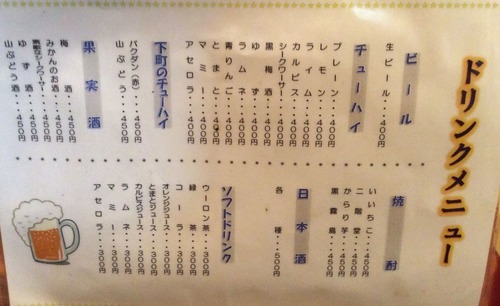 ドリンクメニュー
ビール
生ビール・・400円
チューハイ
プレーン・・・400円
レモン・・・400円
ライム・・・400円
カルピス・・・400円
シークワーサー・・400円
黒梅酒・・・400円
ゆず・・・400円
ラムネ・・・400円
青りんご・・・400円
とまと・・・400円
マミー・・・400円
アセロラ・・400円
下町のチューハイ
バクダン(赤)・・・450円
山ぶどう・・・450円
果実酒
梅酒・・・450円
みかんのお酒・・・450円
素敵なシークワーサー・・450円
ゆず酒・・・450円
山ぶどう酒・・・450円
焼酎
いいちこ・・450円
二階堂・・・450円
からり芋・・450円
黒霧島・・450円
日本酒
各種・・500円
ソフトドリンク
ウーロン茶・・300円
緑茶・・・300円
コーラ・・・300円
オレンジジュース・・300円
とまとジュース・・300円
カルピスジュース・・300円
ラムネ・・・300円
マミー・・・300円
アセロラ・・・300円